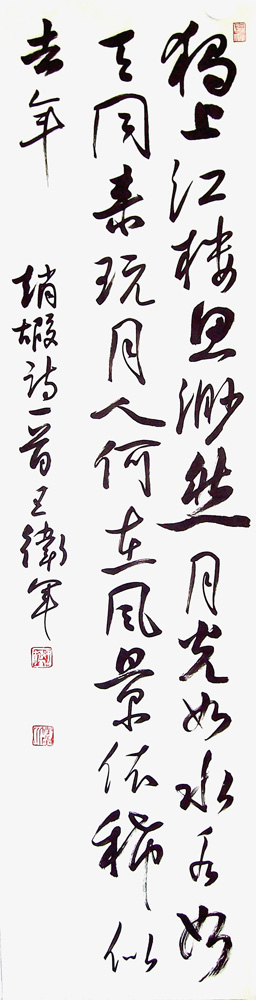 獨上江楼思渺然月光如水水如
天同来玩月人何在风景依稀似
去年
趙嘏詩一首王衛军